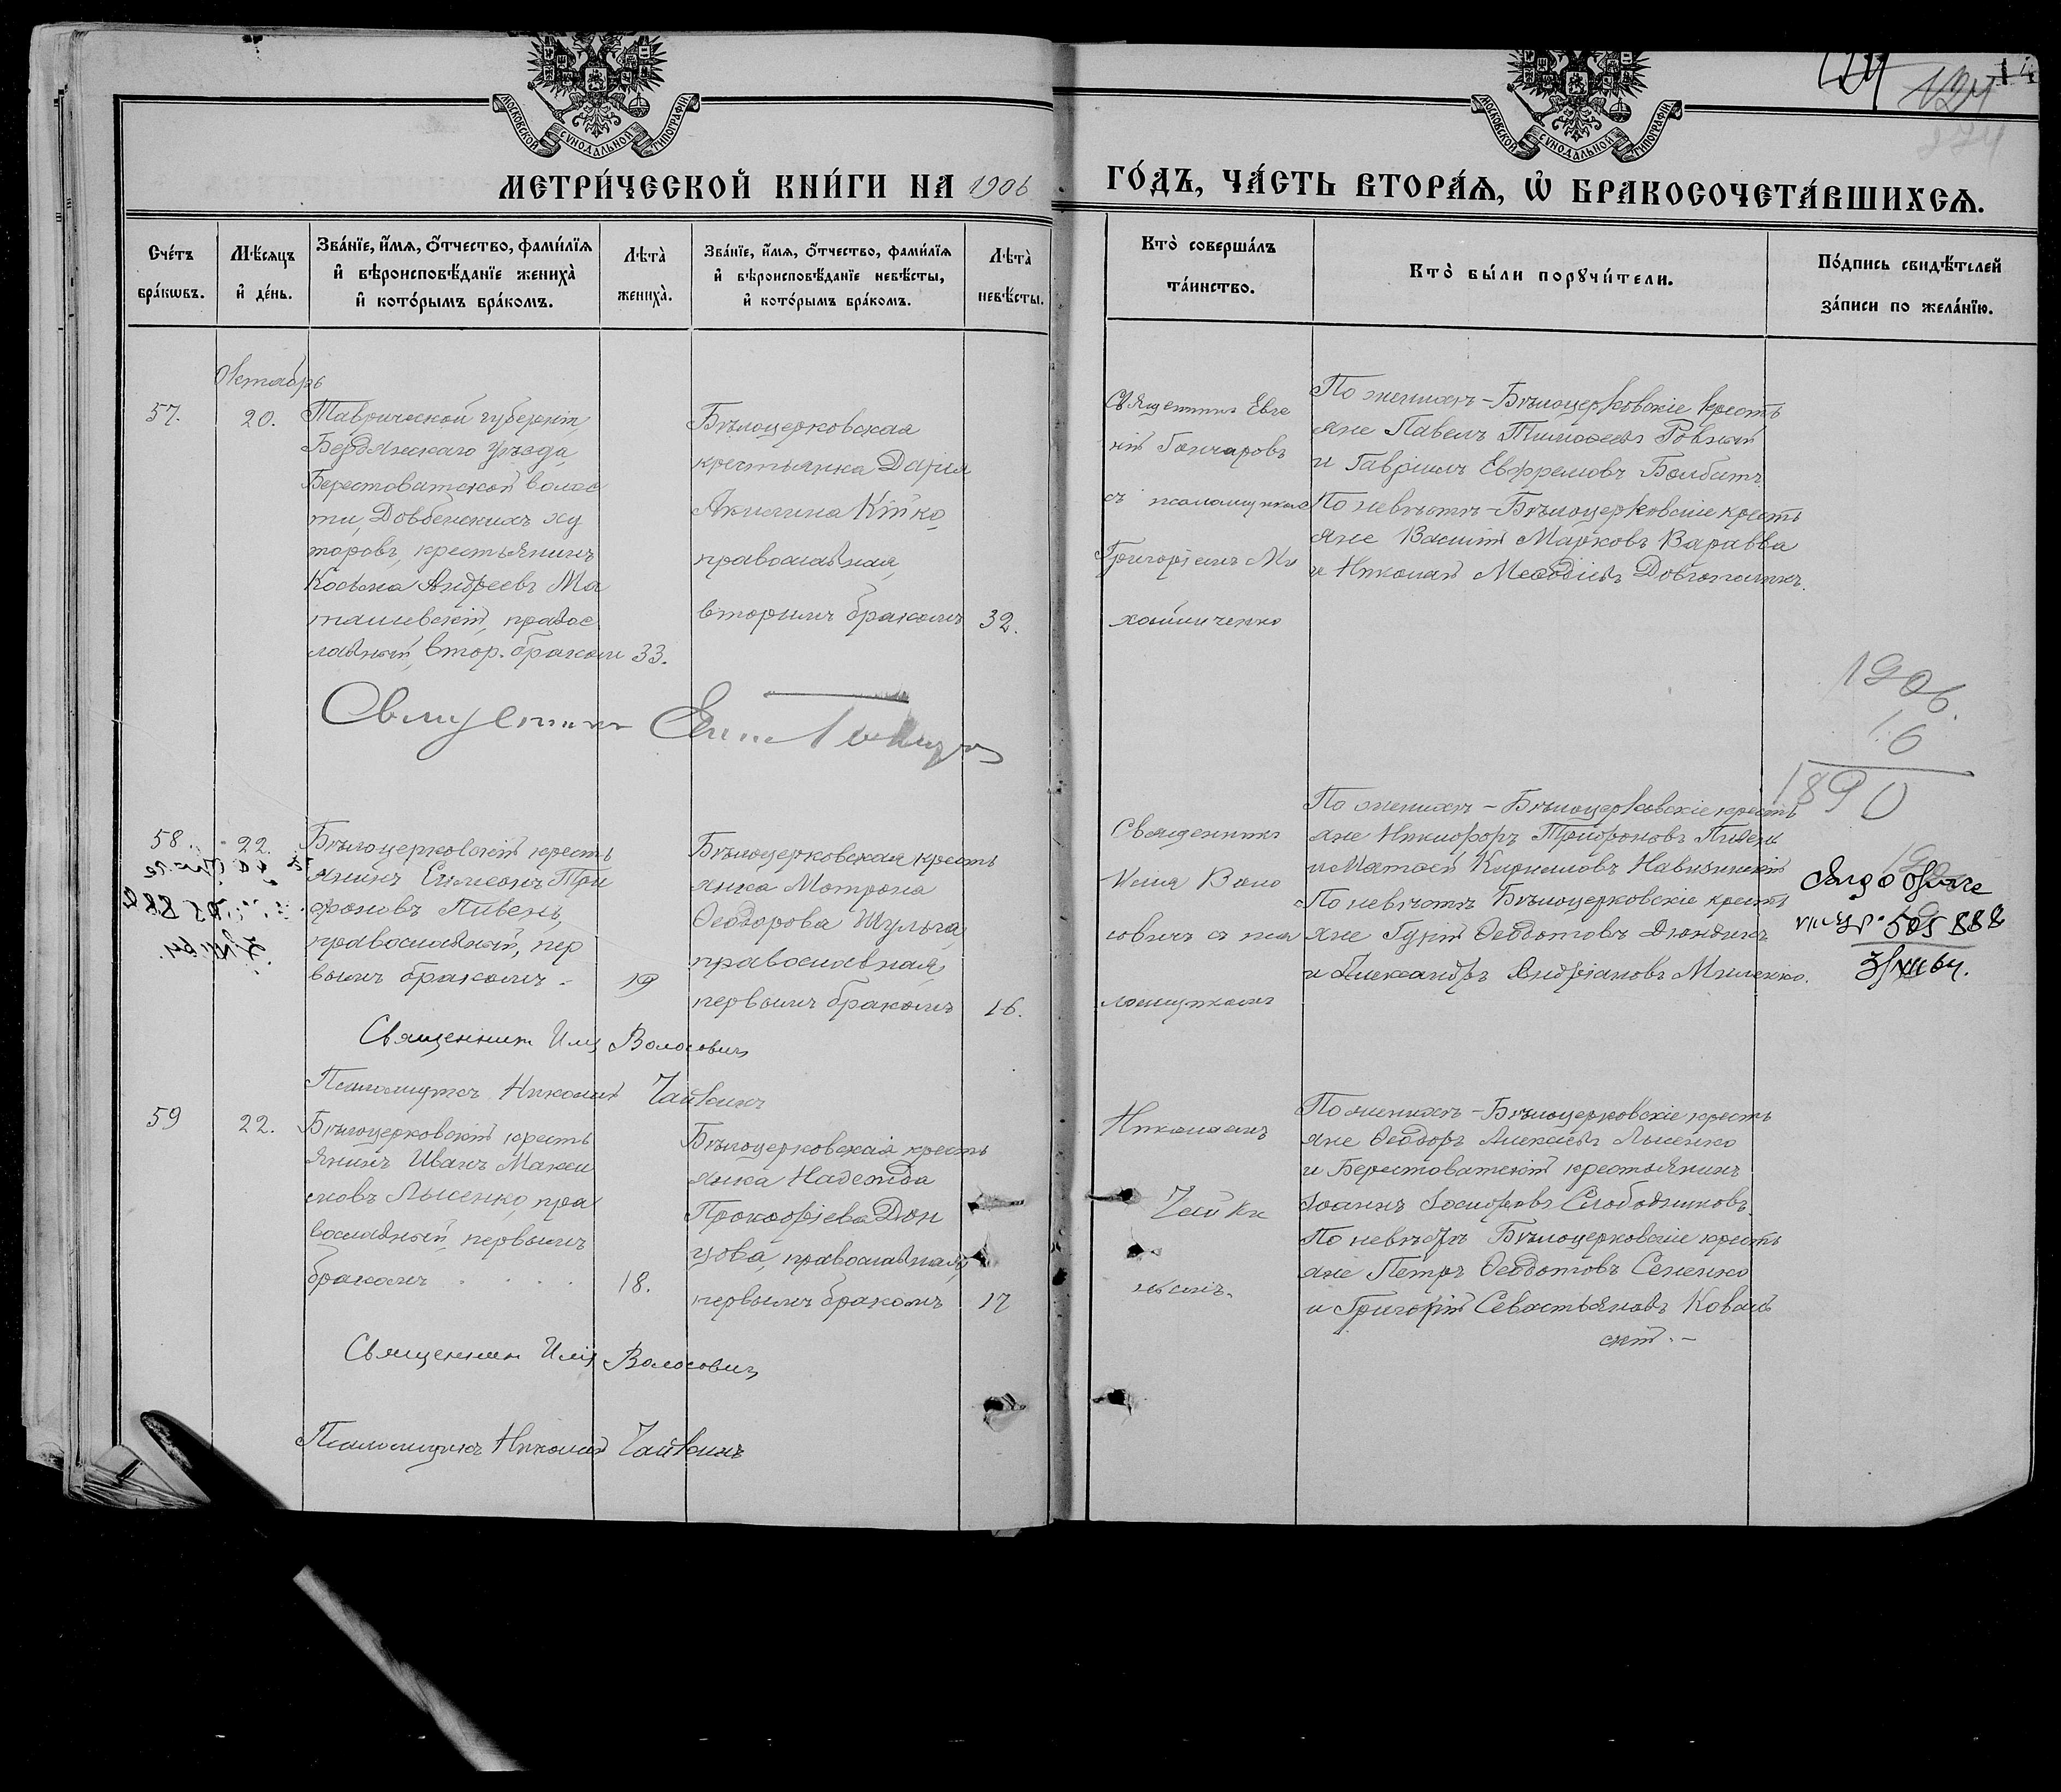 МОСКОВСКОЙ СУНОДАЛЬНОЙ ТИПОГРАФІИ
МОСКОВСКОЙ СУНОДАЛЬНОЙ ТИПОГРАФІИ
124
МЕТРИ́ЧЕСКОЙ КНИ́ГИ НА 1906
ГО́ДЪ, ЧА́СТЬ ВТОРА́Я, Ѡ҆ БРАКОСОЧЕТА́ВШИХСЯ.
Сче́тъ
бра́кѡвъ.
Мѣ́сяцъ
и҆ де́нь.
Зва́нїе, и҆́мя, ѻ҆́тчество, фами́лїя
и҆ вѣроисповѣ́данїе жениха̀
и҆ кото́рымъ бра́комъ.
Лѣта̀
жениха̀.
Зва́нїе, и҆́мя, ѻ҆́тчество, фами́лїя
и҆ вѣроисповѣ́данїе невѣ́сты,
и҆ кото́рымъ бра́комъ.
Лѣта̀
невѣ́сты.
Кто̀ соверша́лъ
та́инство.
Кто̀ бы́ли порꙋчи́тели.
По́дпись свидѣ́телей
за́писи по жела́нїю.
Октябрь
57.
20.
Таврической губерніи,
Бердянскаго уѣзда,
Берестоватской волос
ти, Довбенскихъ ху
торовъ, крестьянинъ
Косьма Андреевъ Ма
правос
лавный, втор. бракомъ 33.
Бѣлоцерковская
крестьянка Дарія
Акимина Кійко,
православная,
вторымъ бракомъ
32.
Священникъ Евге
ній Гончаровъ
съ псаломщикомъ
Григоріемъ Ми
хайличенко
По женихѣ - Бѣлоцерковскіе кресть
яне Павелъ Тимоѳеевъ Ровный
и Гавріилъ Ефремовъ Болбатъ
По невѣстѣ - Бѣлоцерковскіе кресть
яне Василій Марковъ Варавва
и Николай Меѳодіевъ
Священникъ
1906.
16
1890
58.
22.
Бѣлоцерковскій кресть
янинъ Симеонъ Три
фоновъ Пивень,
православный, пер
вымъ бракомъ -
19
Бѣлоцерковская кресть
янка Мотрона
Ѳеодорова Шульга,
православная,
первымъ бракомъ
16.
Священникъ
Илія Воло
совичъ съ пса
ломщикомъ
По женихѣ - Бѣлоцерковскіе кресть
яне Никифоръ Трифоновъ Пивень
и Матѳей Кирилловъ
По невѣстѣ Бѣлоцерковскіе кресть
яне Гурій Ѳеодотовъ Дюндикъ
и Александръ Андріановъ Миленко.
505888
Священникъ Илія Волосовичъ
Псаломщикъ Николай Чайкинъ
59
22.
Бѣлоцерковскій кресть
янинъ Иванъ Макси
мовъ Лысенко, пра
вославный, первымъ
бракомъ . . . .
18.
Бѣлоцерковская кресть
янка Надежда
Прокофіева Дон
цова, православная,
первымъ бракомъ
17
Николаемъ
Чайки
нымъ.
По женихѣ - Бѣлоцерковскіе кресть
яне Ѳеодоръ Алексѣевъ Лысенко
и Берестоватскій крестьянинъ
Іоаннъ Іосифовъ Слободяниковъ.
По невѣстѣ Бѣлоцерковскіе кресть
яне Петръ Ѳеодотовъ Сененко
и Григорій Севастьяновъ Коваль
скій. -
Священникъ Илія Волосовичъ
Псаломщикъ Николай Чайкинъ